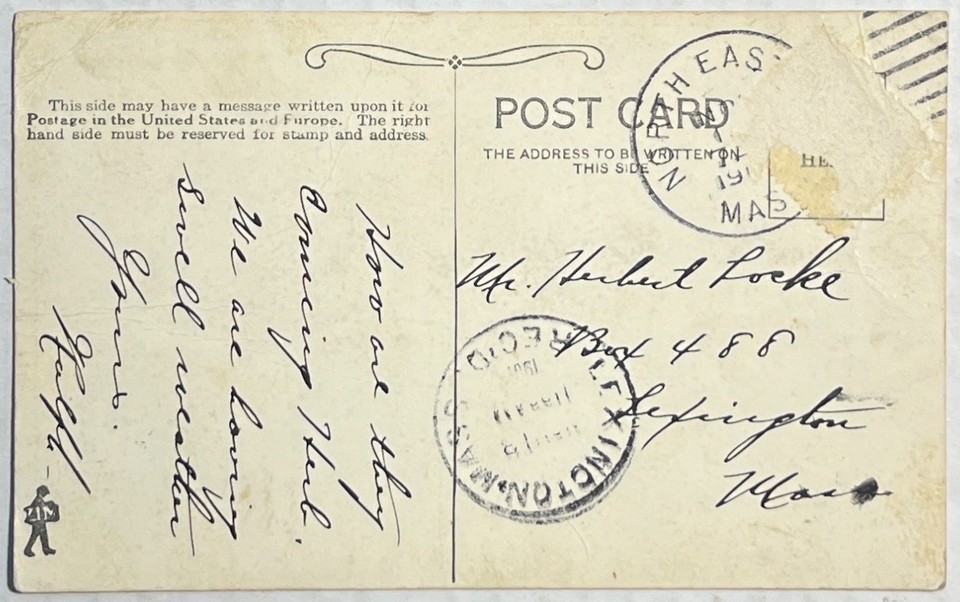 This side may have a message written upon it for
Postage in the United States and Europe. The right
hand side must be reserved for stamp and address.
How are they
Coming Herb.
We are having
swell weather
Yours.
Ralph-
POST CARD
THE ADDRESS TO BE WRITTEN ON
THIS SIDE
HE
NORTH EAS
MAS
Mr. Herbert Locke
Box 488
Lexington
Mass
LEXINGTON, MASS
REC'D.